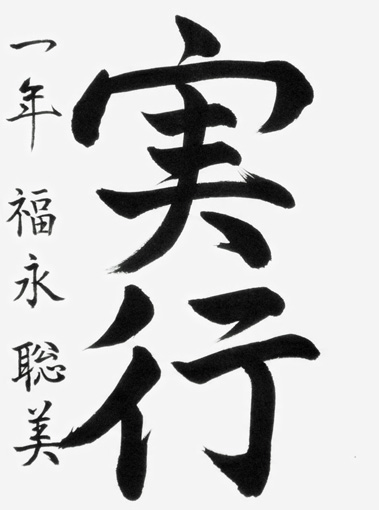 実行
一年 福永 聡美